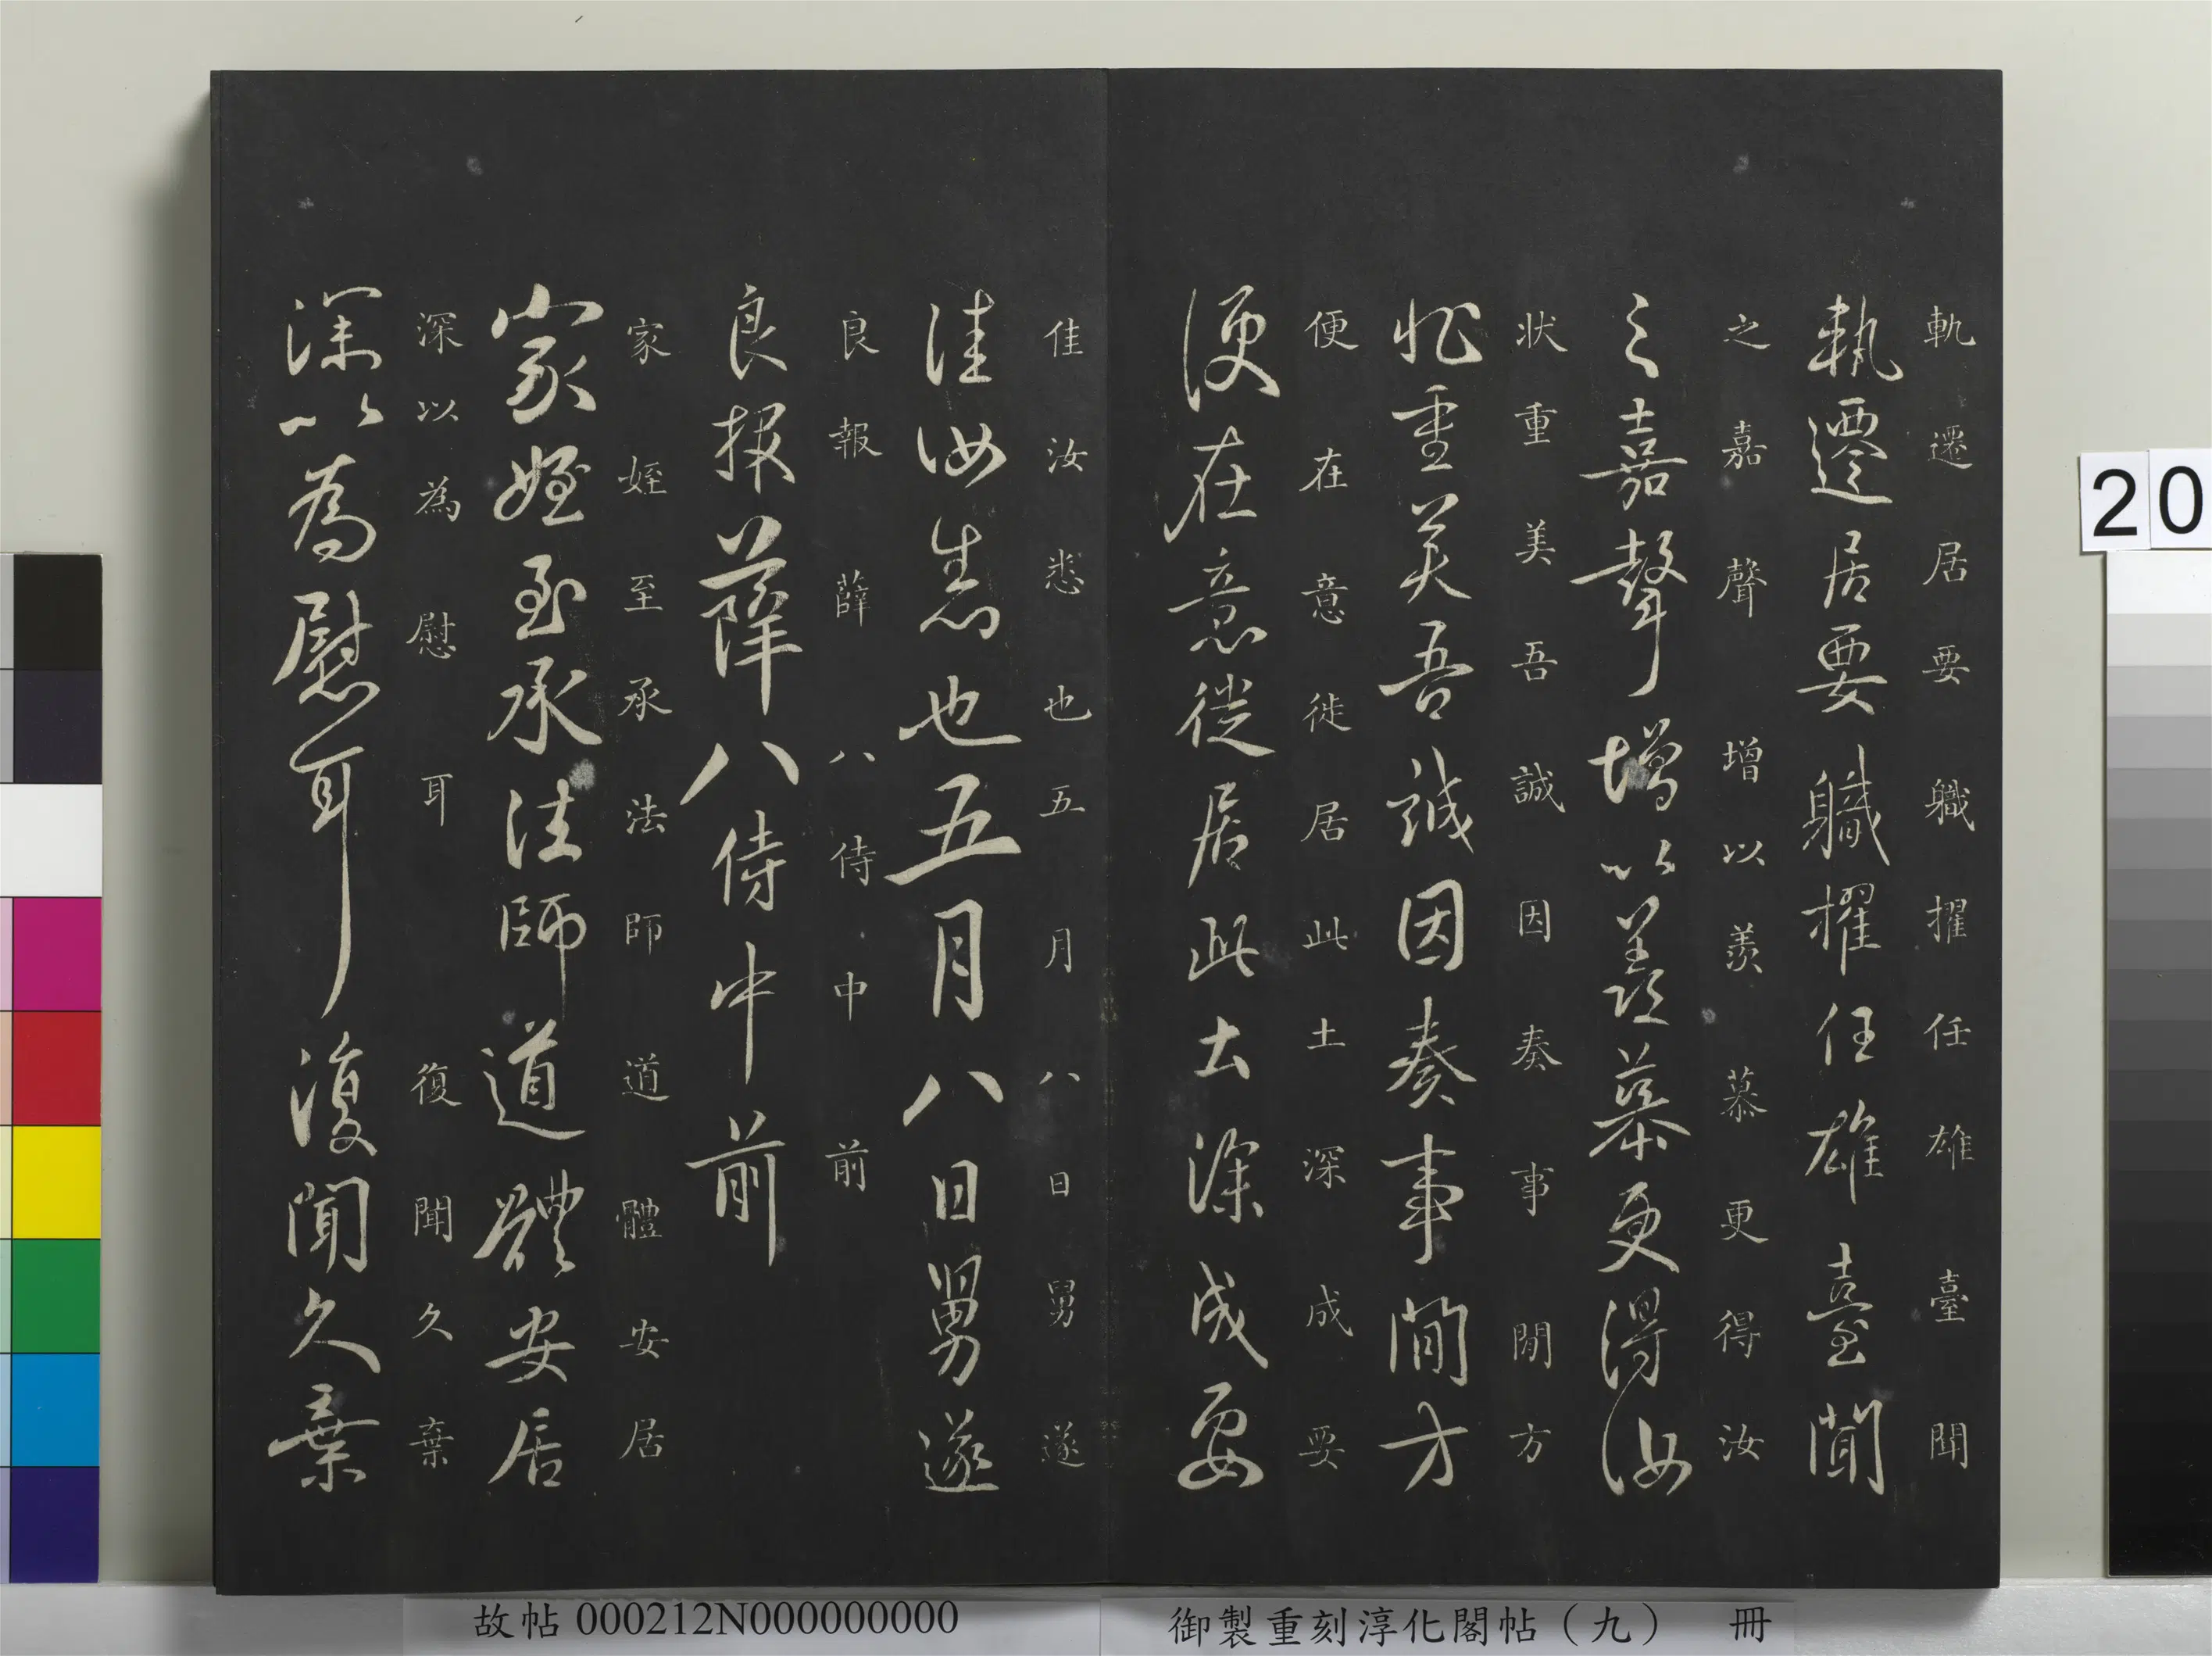 軌遷居要職擢任雄臺聞
軌遷居要職擢任雄臺聞
之嘉聲增以羨慕更得汝
之嘉聲增以羨慕更得汝
狀重美吾誠因奏事閒方
狀重美吾誠因奏事閒方
便在意徙居此土深成要
便在意徙居此土深成要
佳汝悉也五月八日舅遂
佳汝悉也五月八日舅遂
良報薛八侍中前
良報薛八侍中前
家姪至承法師道體安居
家姪至承法師道體安居
深以為慰耳復聞久棄
深以為慰耳復聞久棄
20
故帖000212N000000000
御製重刻淳化閣帖（九） 冊